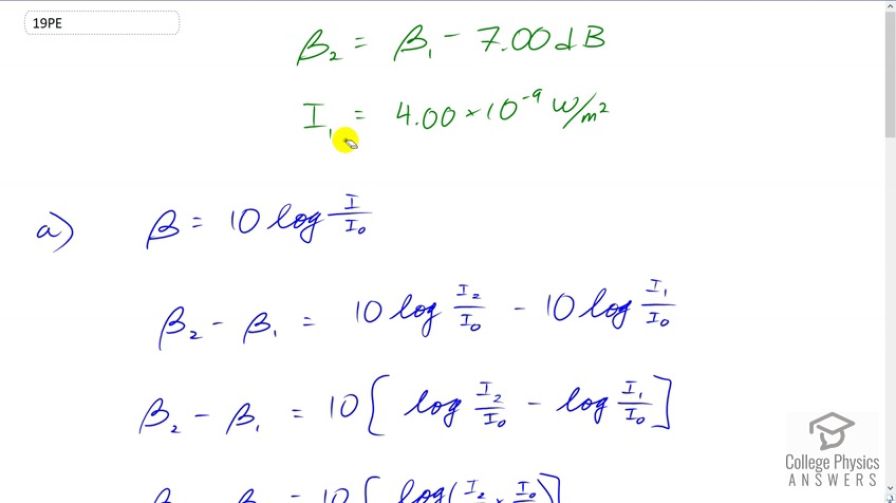 19PE
β₂ = β₁ - 7.00 dB
I₁ = 4.00 × 10⁻⁹ W/m²
a) β = 10 log I/I₀
β₂ - β₁ = 10 log I₂/I₀ - 10 log I₁/I₀
β₂ - β₁ = 10 [ log I₂/I₀ - log I₁/I₀ ]
β₂ - β₁ = 10 [ log( I₂/I₀ × I₀/
College Physics
ANSWERS